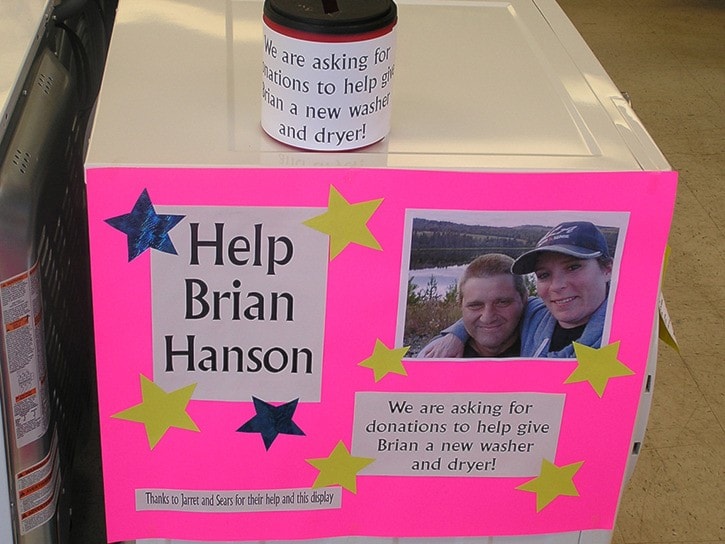 We are asking for
donations to help
Brian a new washer
and dryer!
Help
Brian
Hanson
We are asking for
donations to help give
Brian a new washer
and dryer!
Thanks to Jarret and Sears for their help and this display